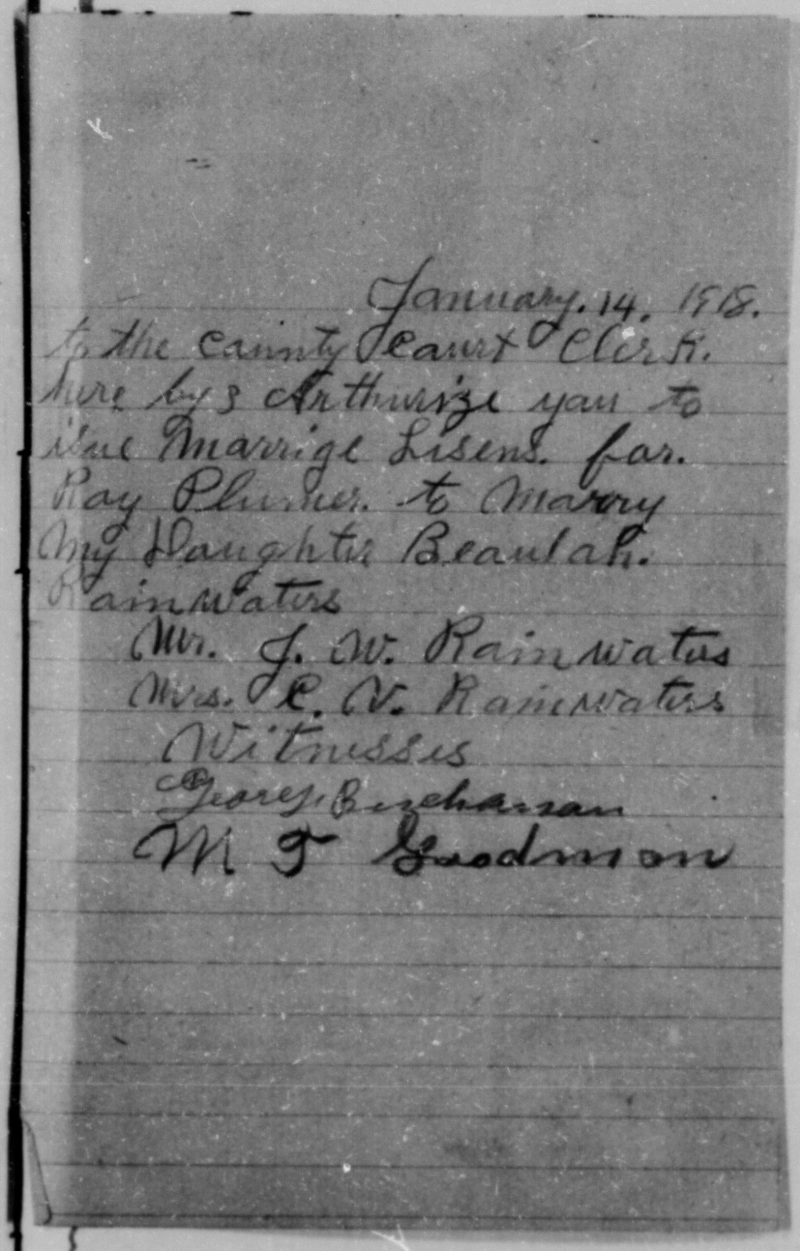 January. 14, 1918.
to the cainty Caurt Clerk.
here by I Arthurize yau to
isue Marrige Lisens. far.
Ray Plumer. to Marry
My Daughter Beaulah.
Rainwaters
Mr. J. W. Rainwaters
Mrs. C. V. Rainwaters
Witnesses
George Buchanan
M T Goodman